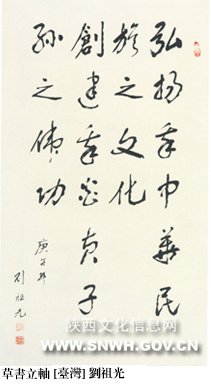 弘揚我中華民
族之文化
創建我炎黃子
孫之偉功
劉祖光
陕西文化信息网
WWW.SNWH.GOV.CN
草書立軸 [臺灣] 劉祖光